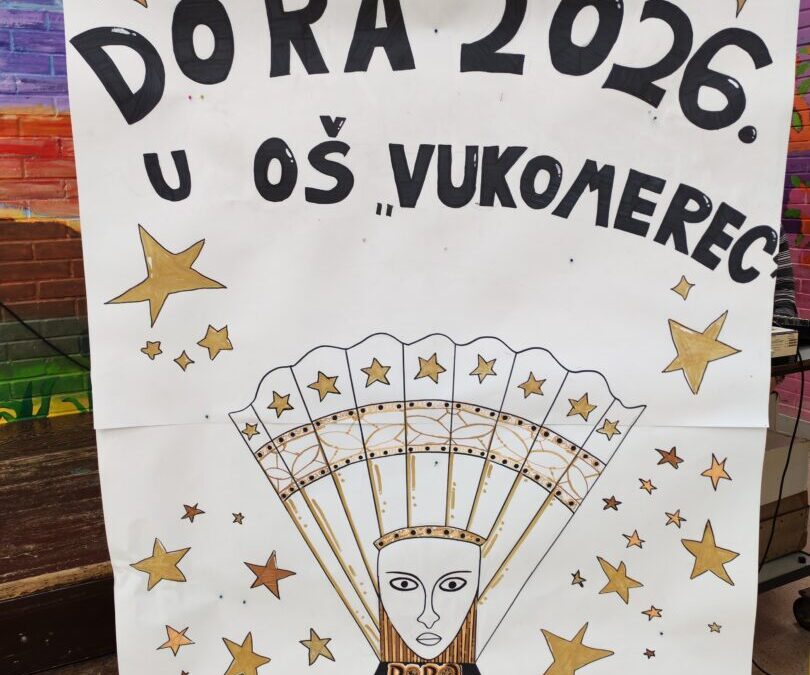 DORA 2026.
U OŠ „VUKOMEREC”
DORA